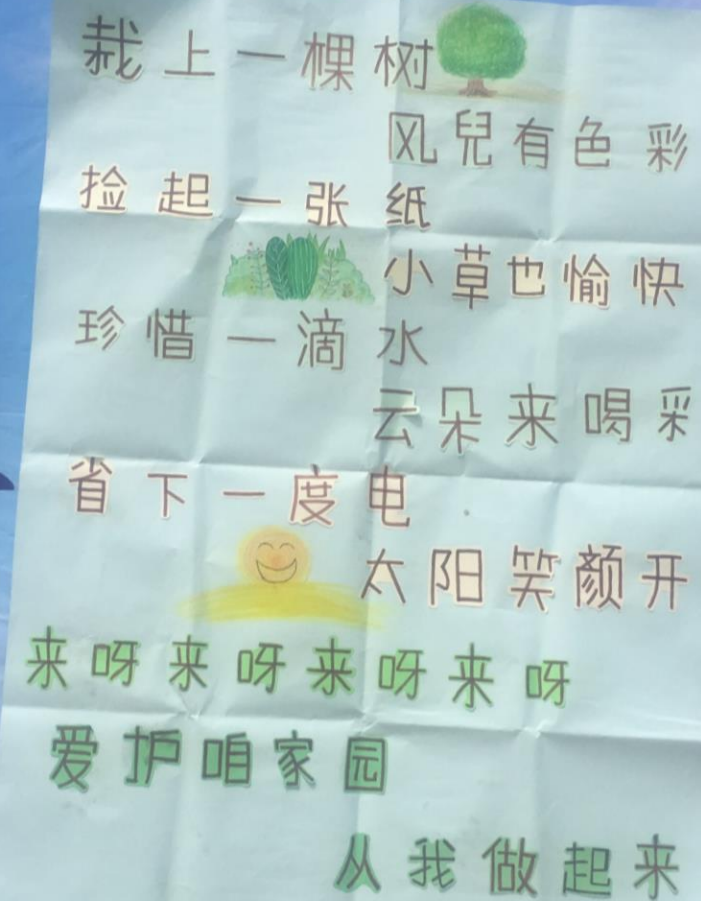 栽上一棵树
风兒有色彩
捡起一张纸
小草也愉快
珍惜一滴水
云朵来喝彩
省下一度电
太阳笑颜开
来呀来呀来呀来呀
爱护咱家园
从我做起来